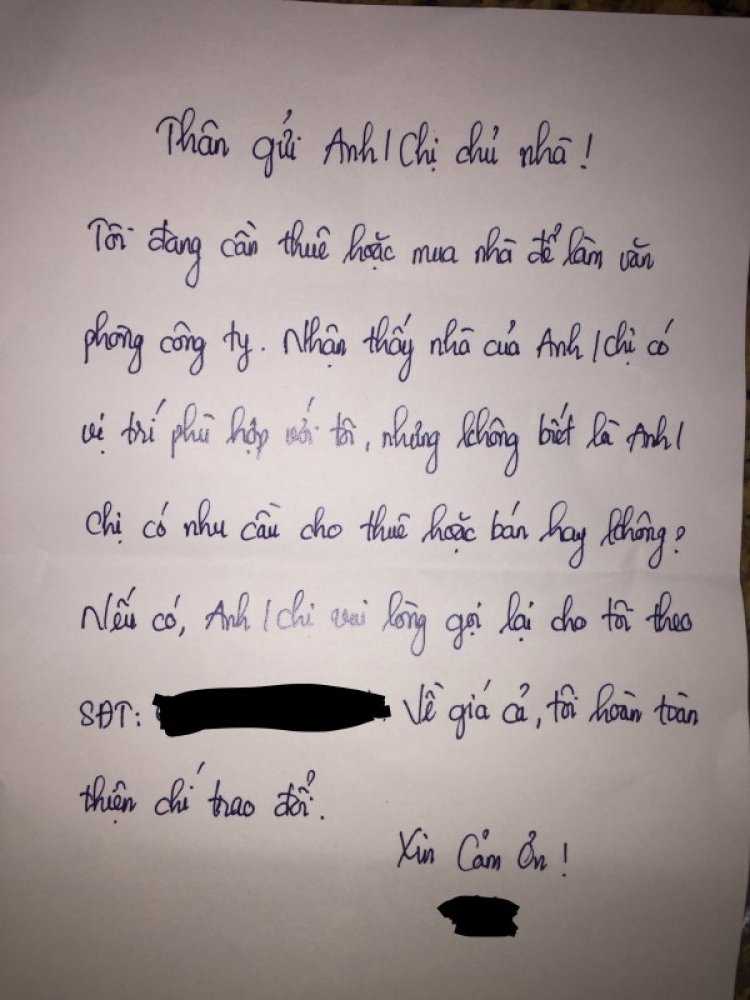 Thân gửi Anh/Chị chủ nhà!
Tôi đang cần thuê hoặc mua nhà để làm văn
phòng công ty. Nhận thấy nhà của Anh/chị có
vị trí phù hợp với tôi, nhưng không biết là Anh/
Chị có nhu cầu cho thuê hoặc bán hay không?
Nếu có, Anh/chi vui lòng gọi lại cho tôi theo
SĐT: Về giá cả, tôi hoàn toàn
thiện chí trao đổi.
Xin Cảm Ơn!